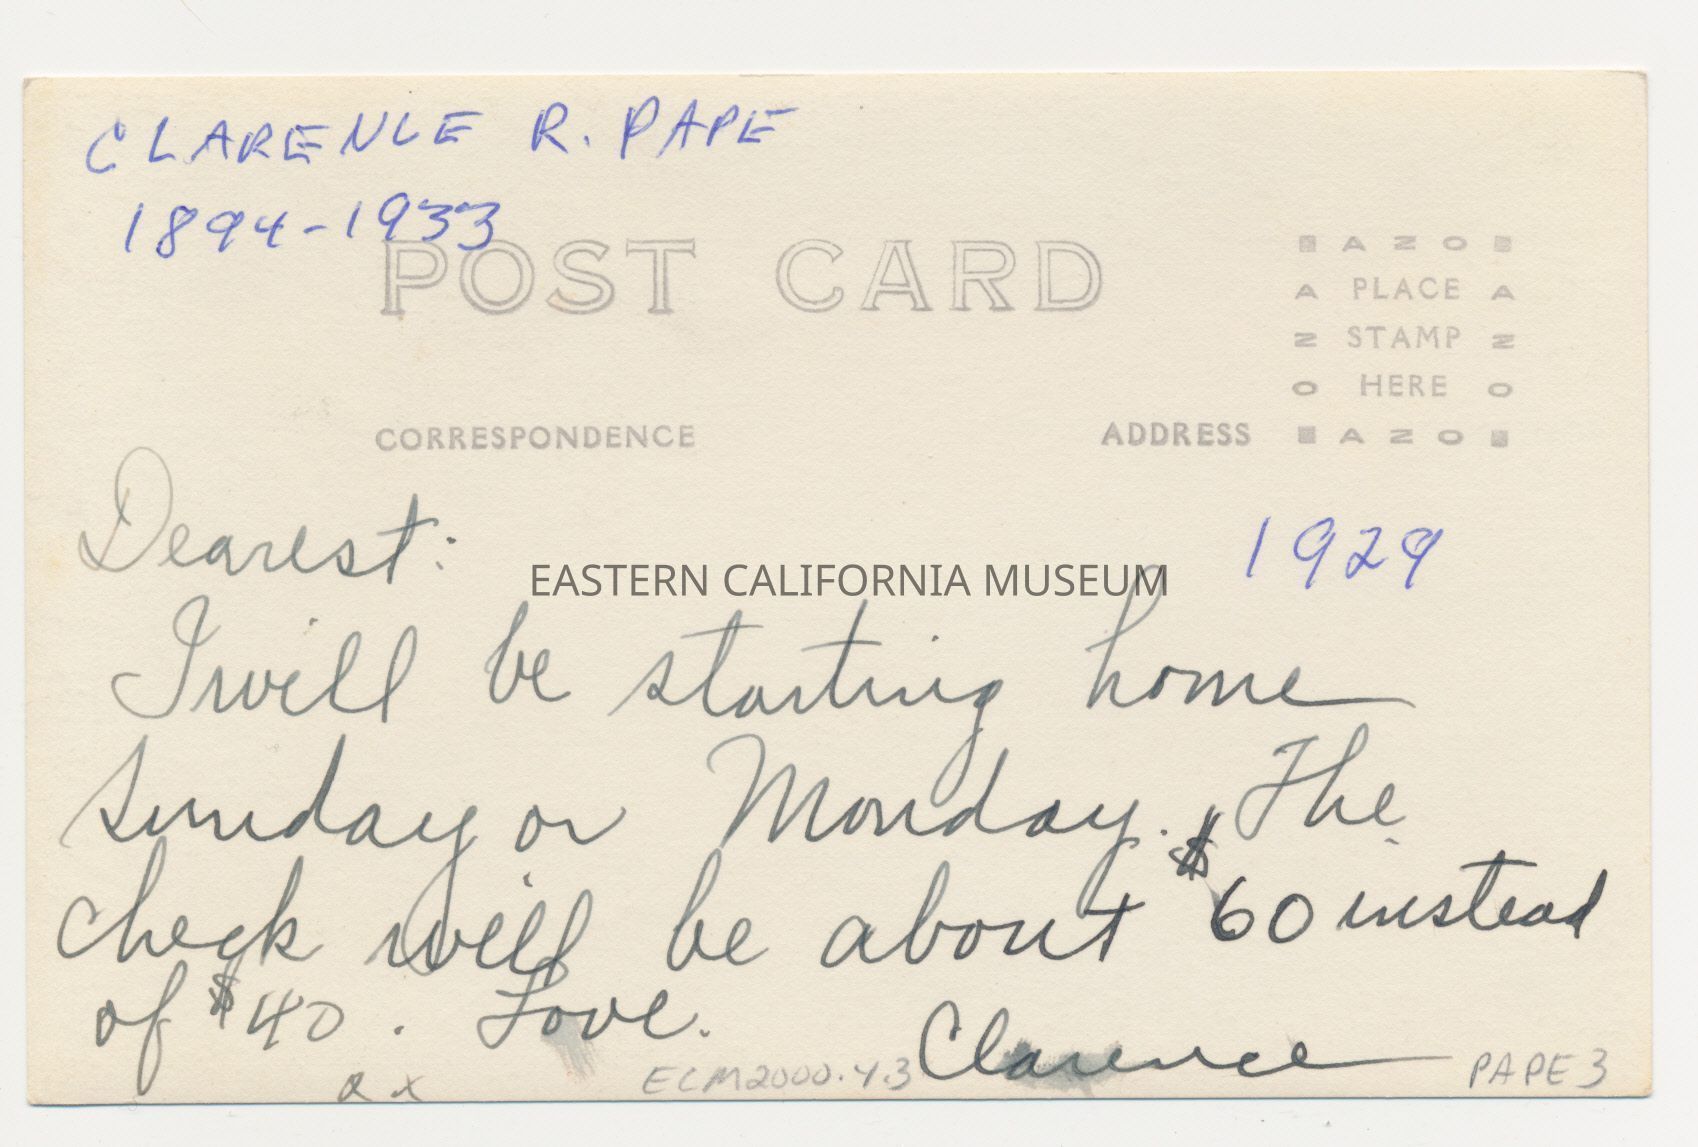 CLARENCE R. PAPE
1894-1933
POST CARD
AZO
A PLACE A
Z STAMP Z
O HERE O
CORRESPONDENCE ADDRESS AZO
Dearest: 1929
EASTERN CALIFORNIA MUSEUM
I will be starting home
Sunday or Monday. The
check will be about $60 instead
of $40. Love.
Clarence
ECM2000.4.3 PAPE 3